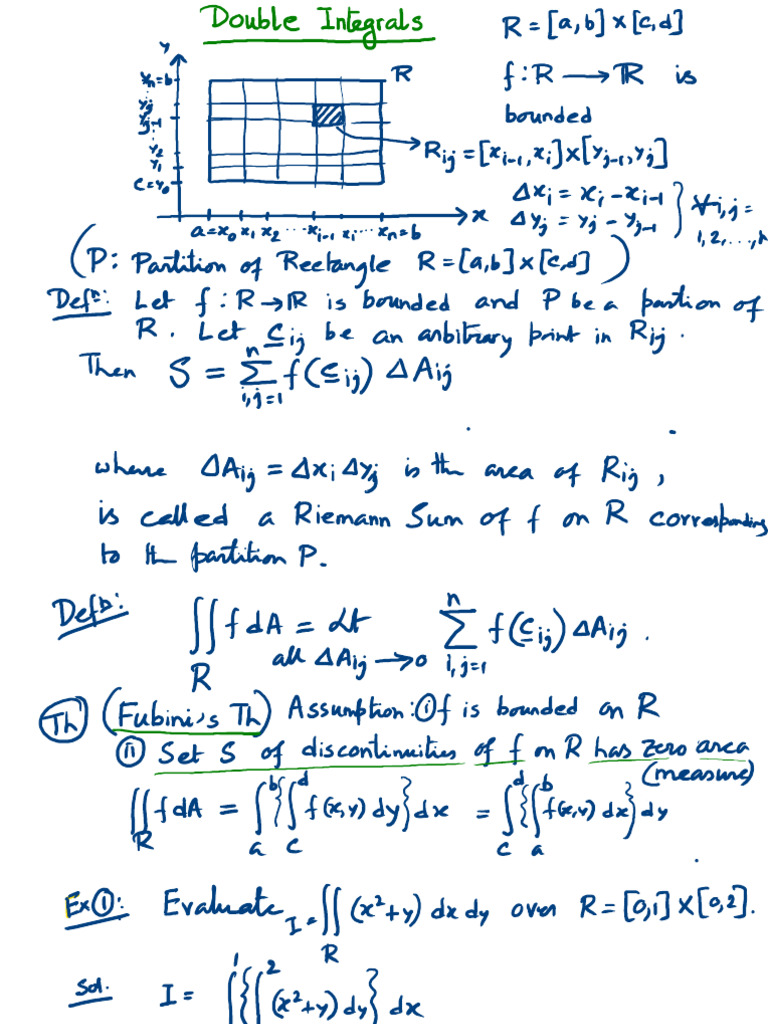 Double Integrals
R = [a,b] x [c,d]
f : R → ℝ is
bounded
y
xn=b
yj
yj-1
y2
y1
c=y0
R
Rij = [xi-1, xi] x [yj-1, yj]
Δxi = xi - xi-1
Δyj = yj - yj-1
} ∀ i,j =
1, 2, ..., n
a=x0 x1 x2 ... xi-1 xi ... xn=b
x
(P: Partition of Rectangle R = [a,b] x [c,d])
Defn: Let f : R → ℝ is bounded and P be a partion of
R. Let cij be an arbitrary point in Rij.
Then S = Σ_{i,j=1}^{n} f(cij) ΔAij
where ΔAij = Δxi Δyj is th area of Rij,
is called a Riemann Sum of f on R corresponding
to th partition P.
Defn: ∬_R f dA = Lt_{all ΔAij → 0} Σ_{i,j=1}^{n} f(cij) ΔAij.
Th (Fubini's Th) Assumption: (i) f is bounded on R
(ii) Set S of discontinuities of f on R has zero area
(measure)
∬_R f dA = ∫_a^b {∫_c^d f(x,y) dy} dx = ∫_c^d {∫_a^b f(x,y) dx} dy
Ex(1): Evaluate I = ∬_R (x²+y) dx dy over R = [0,1] x [0,2].
Sol. I = ∫^1 {∫^2 (x²+y) dy} dx